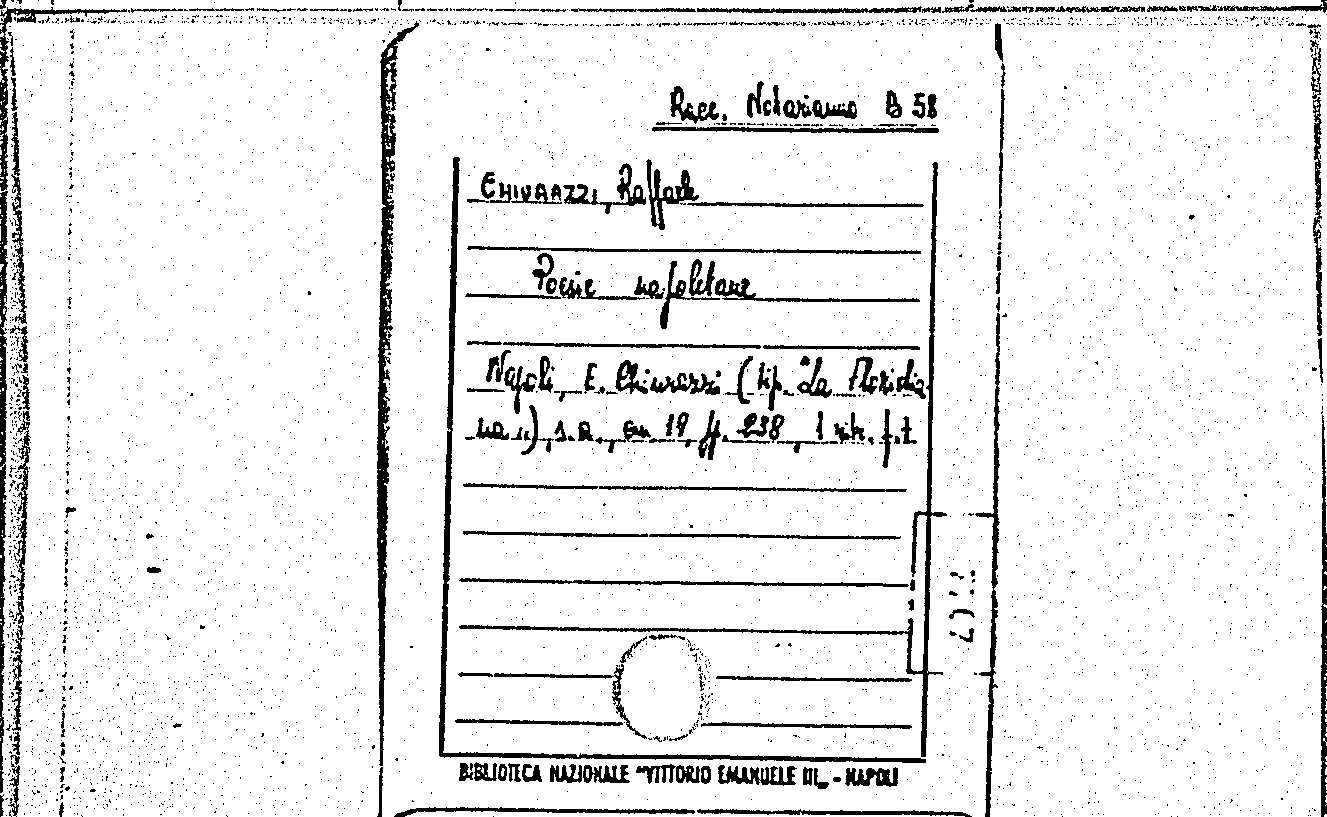 Racc. Notarianno B 58
CHIURAZZI, Raffaele
Poesie napoletane
Napoli, E. Chiurazzi (tip. "La Floridia-
na„), s.a., cm 19, pp. 238, 1 ritr. f.t
BIBLIOTECA NAZIONALE "VITTORIO EMANUELE III„ - NAPOLI